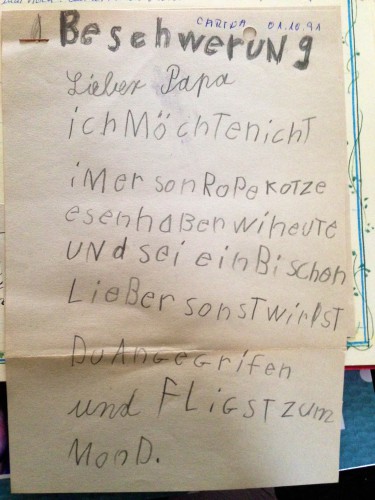 CARINA 01.10.91
BeschwerunG
Lieber Papa
ich MöchTe nichT
iMer son RoPe KoTze
esen haBen wi heute
UNd sei ein Bischen
LieBer sonst wirst
Du AnGeGrifen
und FLiGST zum
MonD.